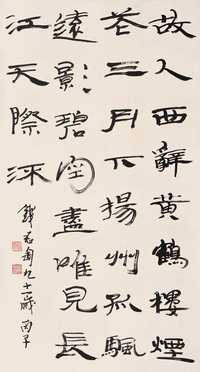 故人西辭黃鶴樓煙
花三月下揚州孤颿
遠影碧空盡唯見長
江天際流
錢君匋九十一歲 丙子